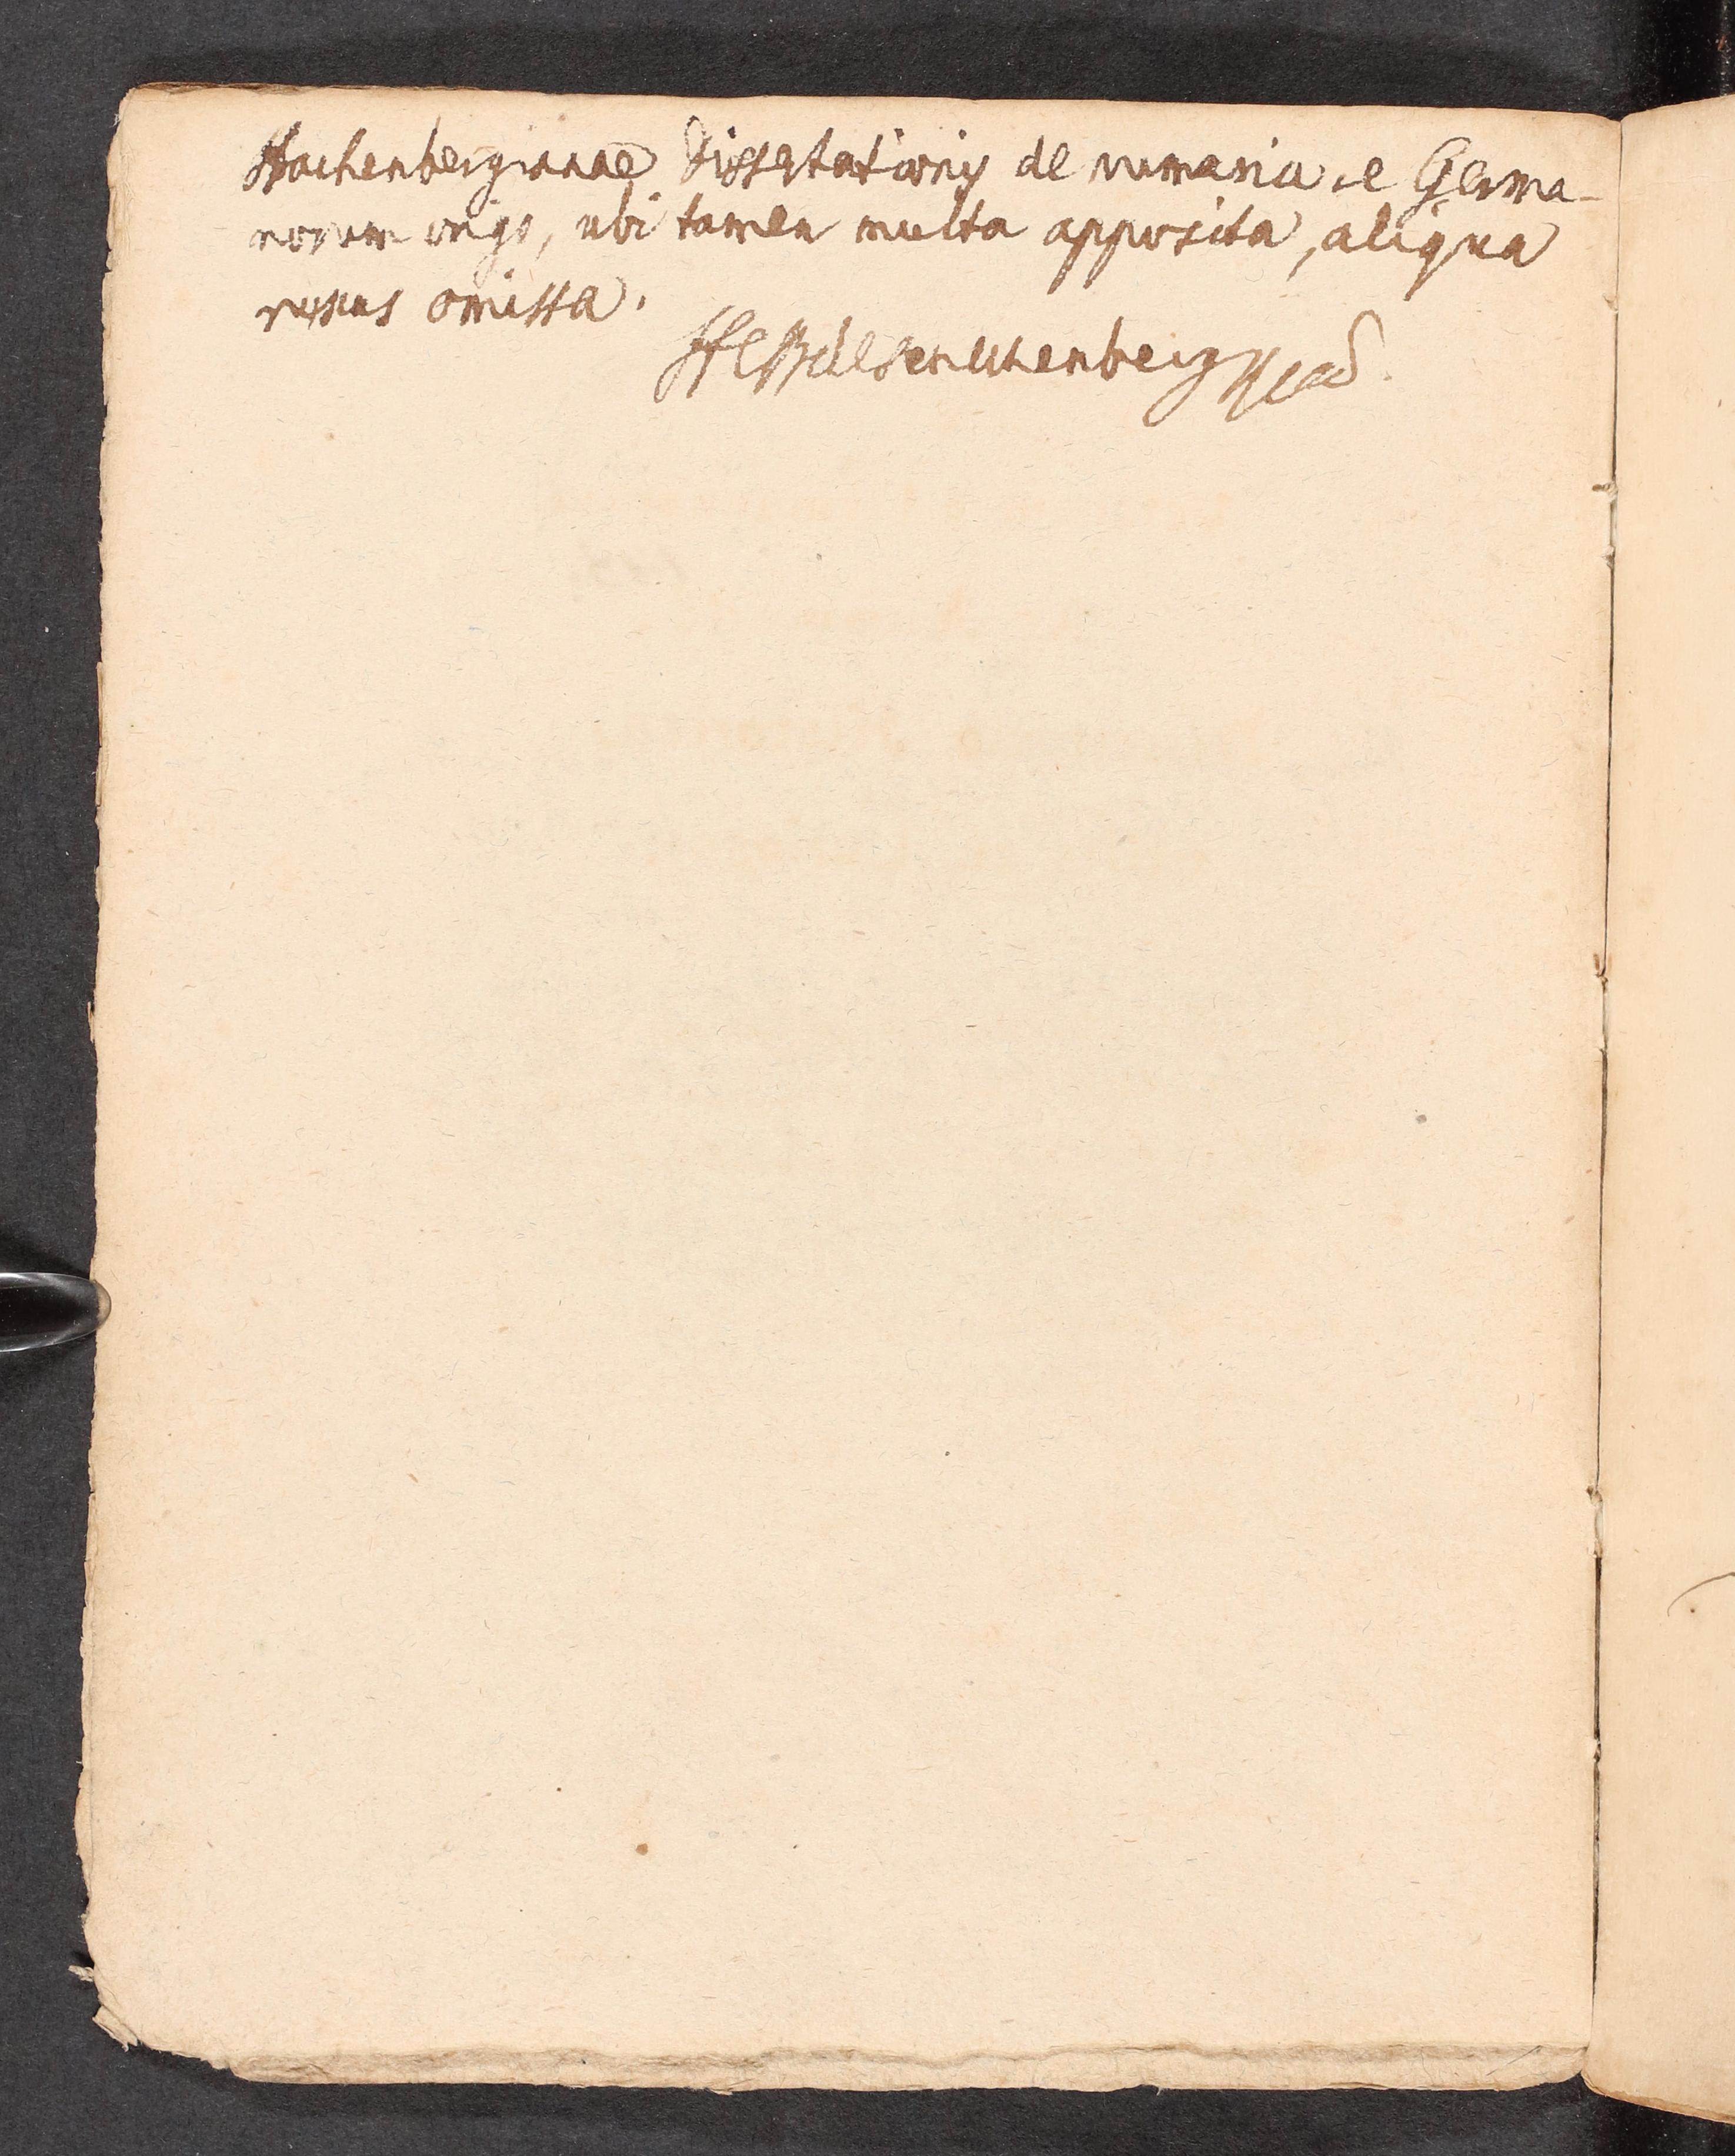 Hachenbergianae Dissertationis de rumania, e Germa-
norum origo, ubi tamen multa apposita, aliqua
rursus omissa.